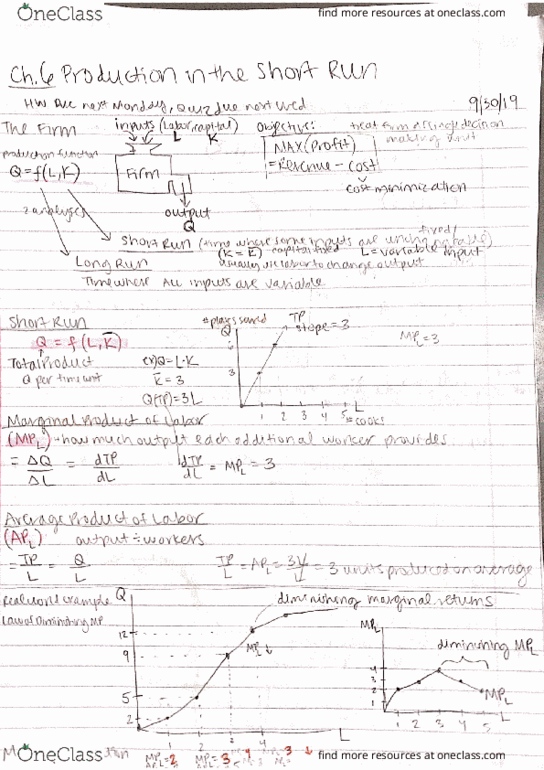 OneClass
find more resources at oneclass.com
Ch.6 Production in the Short Run
HW Due next Monday, Quiz due next wed
9/30/19
The Firm
inputs (Labor, capital)
L K
Objective:
treat firm as single decision making unit
production function
Q = f(L,K)
Firm
MAX(Profit)
= Revenue - cost
cost minimization
2 analyses
output
Q
Short Run (time where some inputs are fixed/unchangeable)
(K = K̄) capital fixed L = variable input
usually use labor to change output
Long Run
Time where All inputs are variable
Short Run
Q = f(L, K̄)
Total Product
Q per time unit
ex) Q = L·K
K̄ = 3
Q(TP) = 3L
Q
TP
slope = 3
MPL = 3
6
3
1 2 3 4 5 L
= cooks
Marginal Product of Labor
(MPL) - how much output each additional worker provides
= ΔQ/ΔL = dTP/dL
dTP/dL = MPL = 3
Average Product of Labor
(APL) output ÷ workers
= TP/L = Q/L
TP/L = APL = 3L/L = 3 units produced on average
Real world example
Law of Diminishing MP
Q
diminishing marginal returns
12
9
5
2
MPL ↓
L
MPL
diminishing MPL
4
3
2
1
MPL
1 2 3 4 5 L
MPL = 2
MPL = 3
4
3 ↓
OneClass
find more resources at oneclass.com